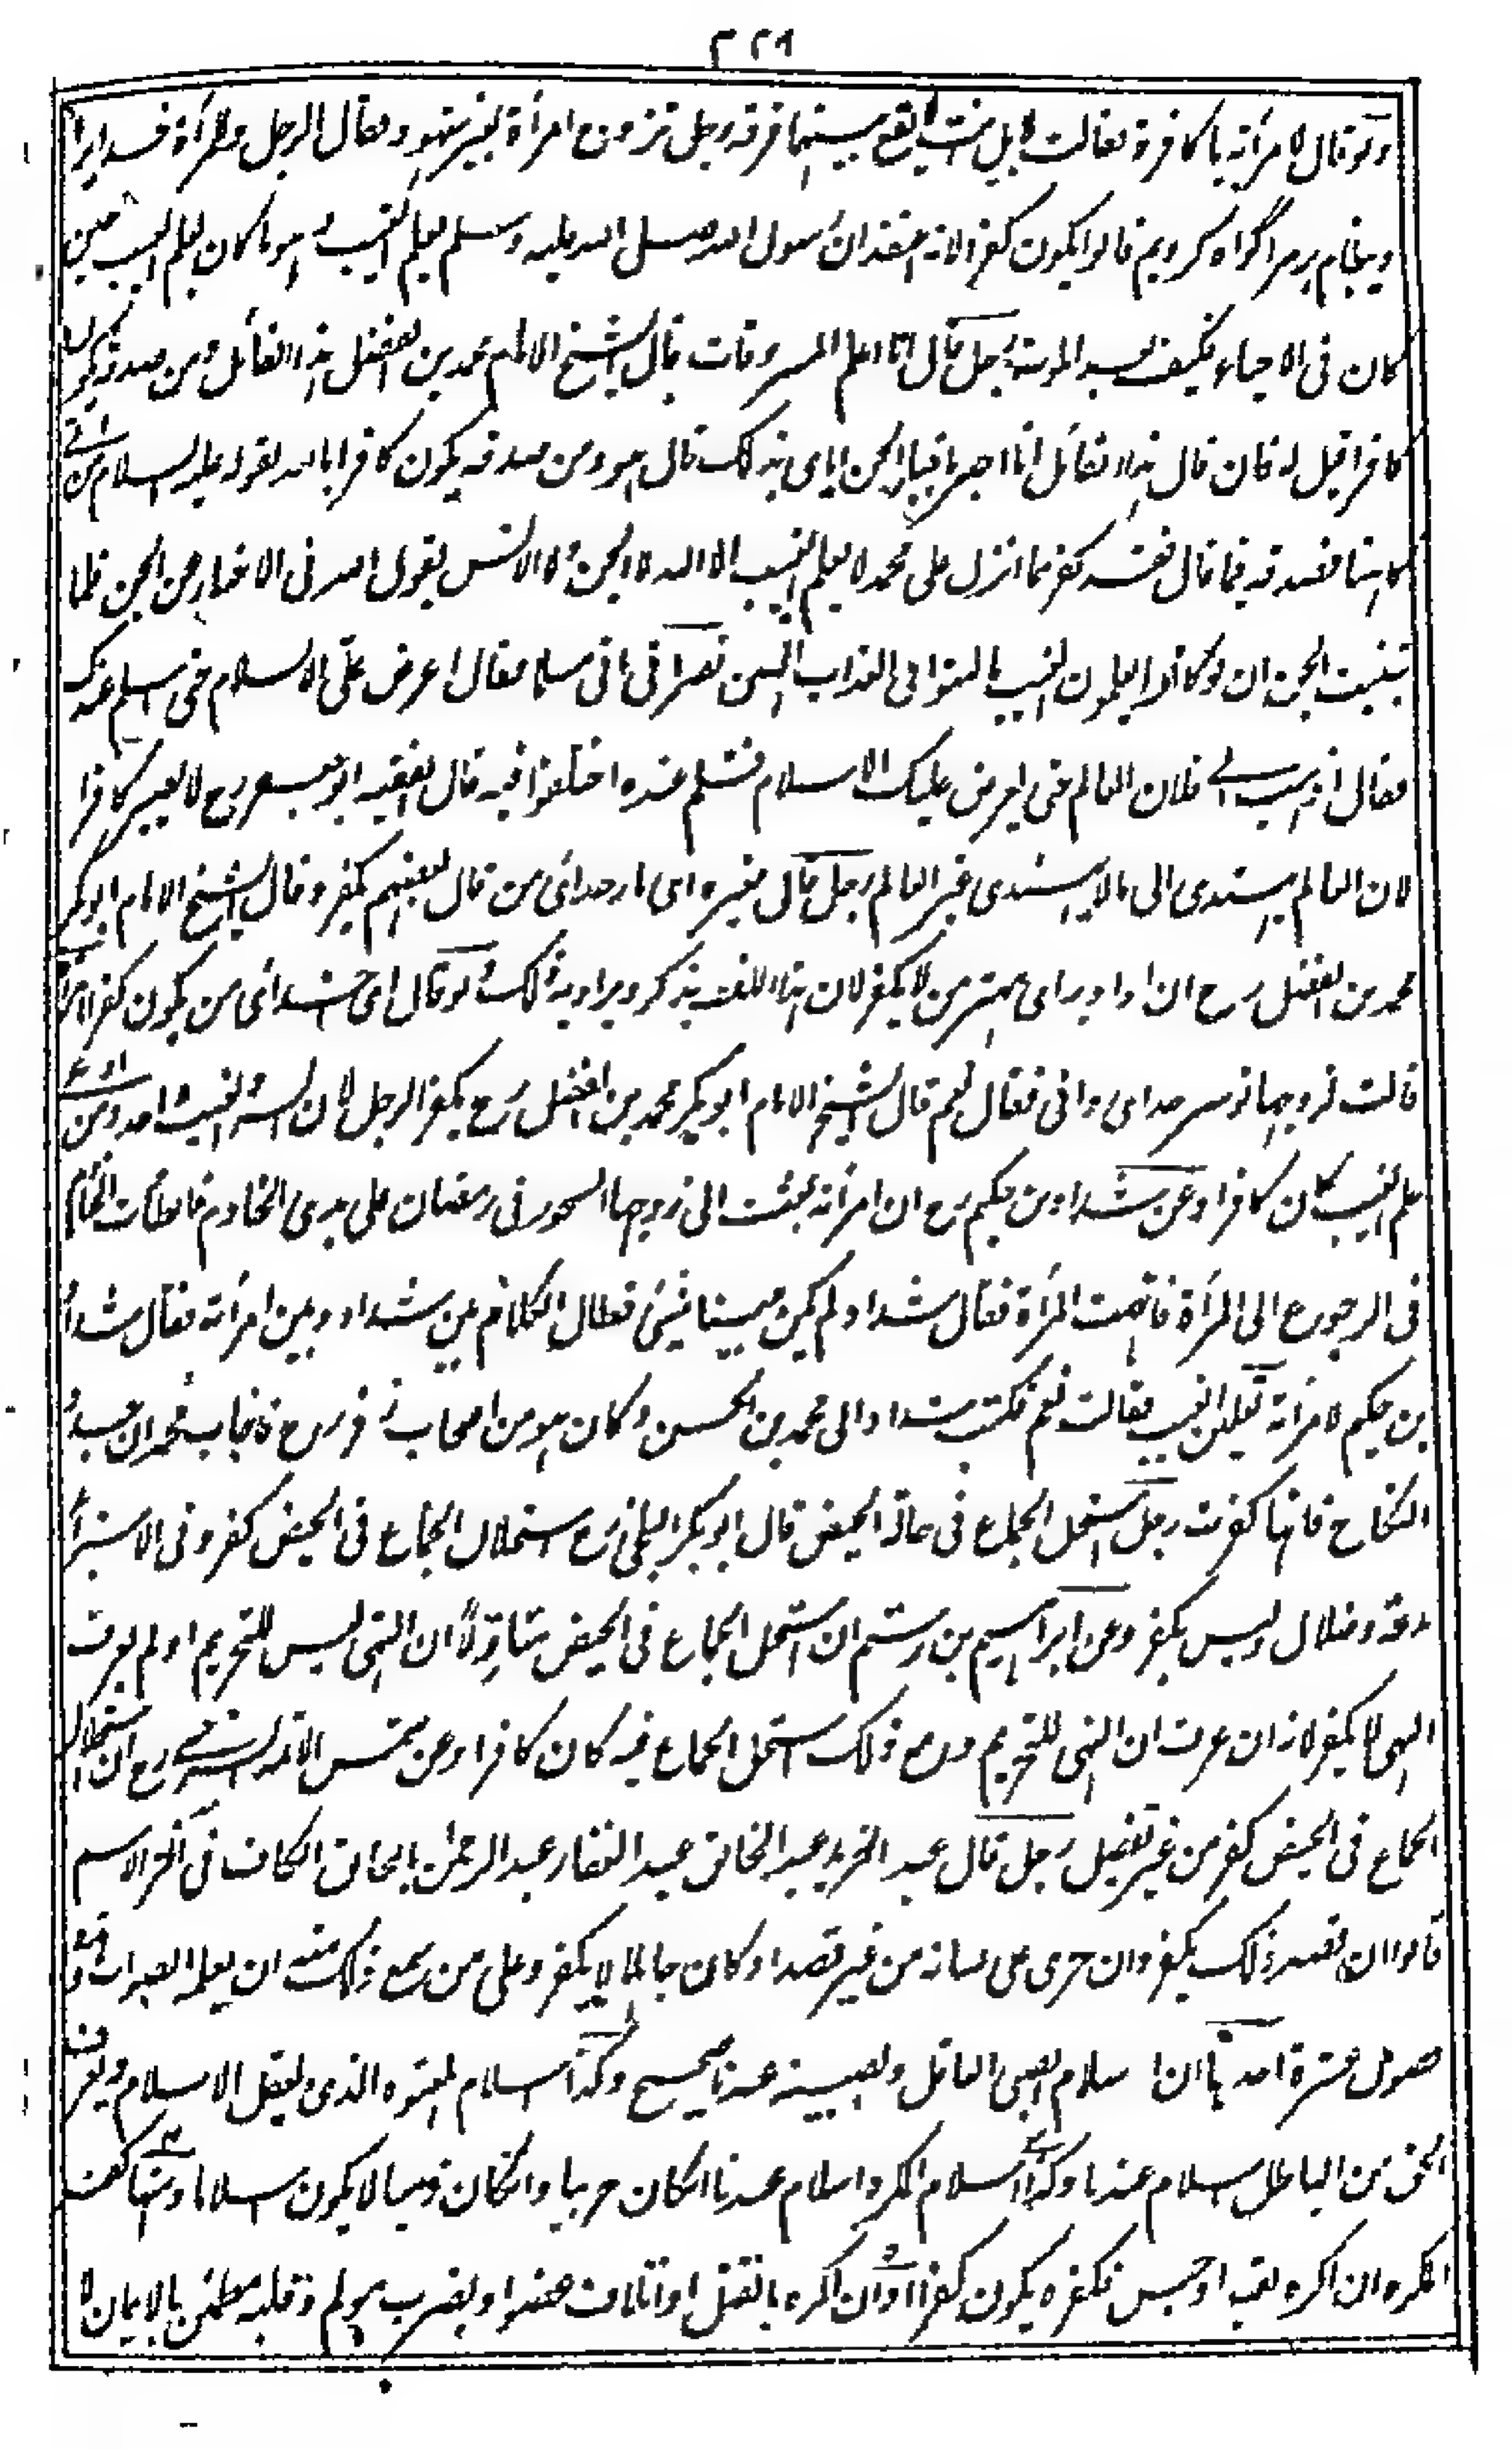 ولو قال لامرأته يا كافرة فقالت لا بل انت لا يقع بينهما فرقة رجل تزوج امرأة بغير شهود فقال الرجل والمرأة خدايرا
وپيغامبر را گواه كرديم قالوا يكون كفرا لانه اعتقد ان رسول الله صلى الله عليه وسلم يعلم الغيب وهو ما كان يعلم الغيب حين
كان فى الاحياء فكيف بعد الموت رجل قال انا اعلم المسروقات قال الشيخ الامام محمد بن الفضل هذا القائل ومن صدقه يكون
كافرا قيل له فان قال هذا القائل انا اخبر باخبار الجن اياى بذلك قال هو ومن صدقه يكون كافرا بالله لقوله عليه السلام من اتى
كاهنا فصدقه فيما قال فقد كفر بما انزل على محمد لا يعلم الغيب الا الله لا الجن ولا الانس يقول الله فى الاخبار عن الجن فلما
تبينت الجن ان لو كانوا يعلمون الغيب ما لبثوا فى العذاب المهين نصرانى اتى مسلما فقال اعرض على الاسلام حتى اسلم عندك
فقال اذهب الى فلان العالم حتى يعرض عليك الاسلام فتسلم عنده اختلفوا فيه قال الفقيه ابو جعفر رح لا يصير كافرا
لان العالم يهتدى الى ما لا يهتدى غير العالم رجل قال لغيره اى بار خداى من قال بعضهم يكفر وقال الشيخ الامام ابو بكر
محمد بن الفضل رح ان اراد به اى مهتر من لا يكفر لان هذا اللفظ يذكر ويراد به ذلك ولو قال اى خداى من يكون كفرا امرأة
قالت لزوجها تو سر خداى دانى فقال نعم قال الشيخ الامام ابو بكر محمد بن الفضل رح يكفر الرجل لان السر والغيب واحد ومن ادعى
علم الغيب كان كافرا وعن شداد بن حكيم رح ان امرأته بعثت الى زوجها السحور فى رمضان على يدى الخادم فابطأت الخادم
فى الرجوع الى المرأة فاتهمت المرأة فقال شداد لم يكن بيننا شئ فطال الكلام بين شداد وبين امرأته فقال شداد
بن حكيم لامرأته تعلمين الغيب فقالت نعم فكتب شداد الى محمد بن الحسن وكان هو من اصحاب زفر رح فاجاب محمد ان جدد
النكاح فانها كفرت رجل استحل الجماع فى حالة الحيض قال ابو بكر البلخى رح استحلال الجماع فى الحيض كفر وفى الاستبراء
بدعة وضلال وليس بكفر وعن ابراهيم بن رستم ان استحل الجماع فى الحيض متاولا ان النهى ليس للتحريم او لم يعرف
النهى لا يكفر لانه ان عرف ان النهى للتحريم ومع ذلك استحل الجماع فيه كان كافرا وعن شمس الائمة السرخسى رح ان استحلال
الجماع فى الحيض كفر من غير تفصيل رجل قال عبد العزيز عبد الخالق عبد الغفار عبد الرحمن بالحاق الكاف فى آخر الاسم
قالوا ان تعمد ذلك يكفر وان جرى على لسانه من غير قصد او كان جاهلا لا يكفر وعلى من سمع ذلك منه ان يعلمه الصواب
فصول عشرة احدها ان اسلام الصبى العاقل والصبية عندنا صحيح وكذا اسلام المعتوه الذى يعقل الاسلام ويعرف
الحق من الباطل اسلام عندنا وكذا اسلام المكره اسلام عندنا ان كان حربيا وان كان ذميا لا يكون اسلاما ومنها كفر
المكره ان اكره بقيد او حبس فكفره يكون كفرا وان اكره بالقتل او اتلاف عضو او بضرب مولم وقلبه مطمئن بالايمان لا